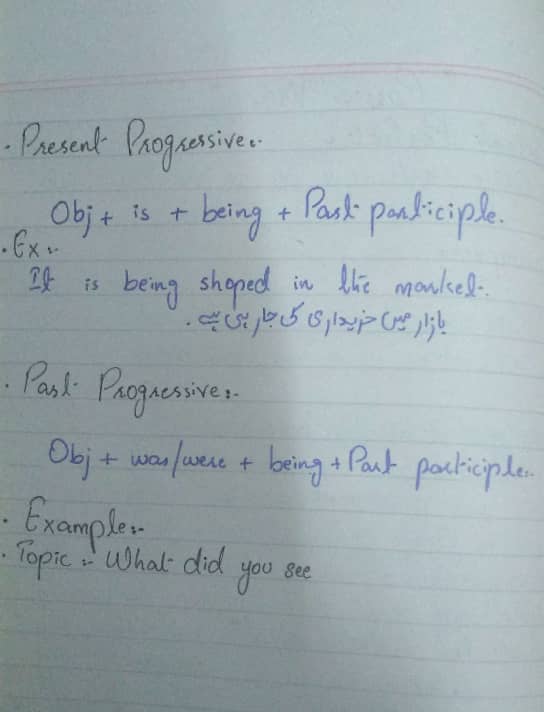 · Present Progressive:-
Obj + is + being + Past participle.
· Ex :-
It is being shoped in the market.
بازار میں خریداری کی جا رہی ہے.
· Past Progressive:-
Obj + was/were + being + Past participle:-
· Example:-
· Topic :- What did you see